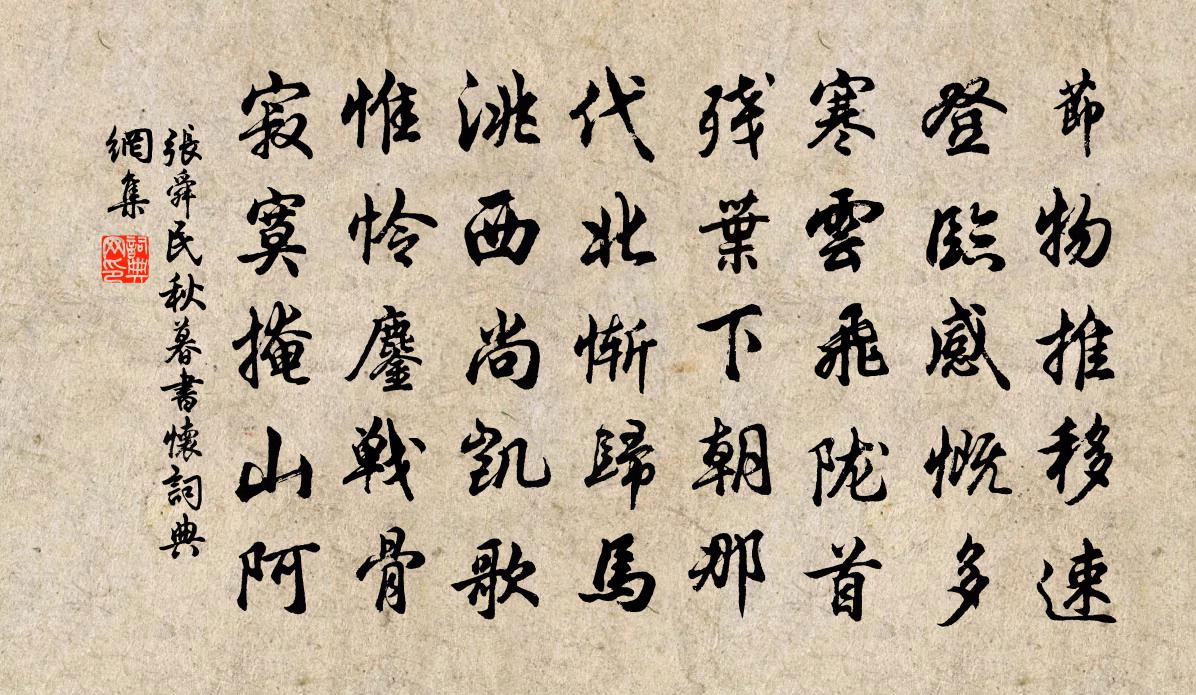 節物推移速
登臨感慨多
寒雲飛陇首
残葉下朝那
代北慚歸馬
洮西尚凱歌
惟怜鏖戦骨
寂寞掩山阿
張舜民秋暮書懷詞典
網集
詞典
网印